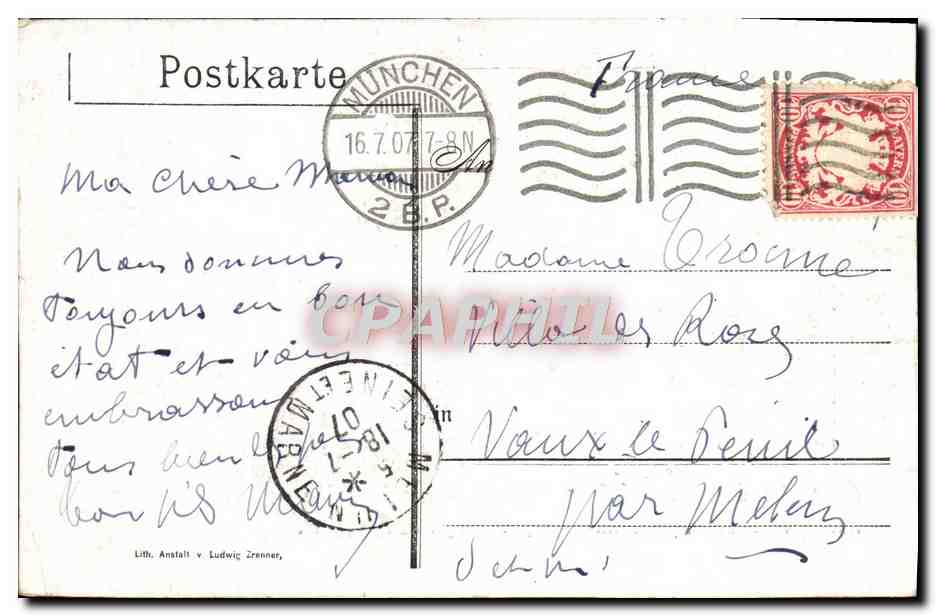 Postkarte
MÜNCHEN
16.7.07 7-8 N
2 B.P.
France
10 BAYERN 10
An
Ma chère Maman
Nous sommes
toujours en bon
état et vous
embrassons
tous bien
Madame Tromme
Villa les Roses
in
Vaux le Penil
par Melun
MELUN SEINE ET MARNE
5 18-7 07
CPAPHIL
Lith. Anstalt v. Ludwig Zrenner,